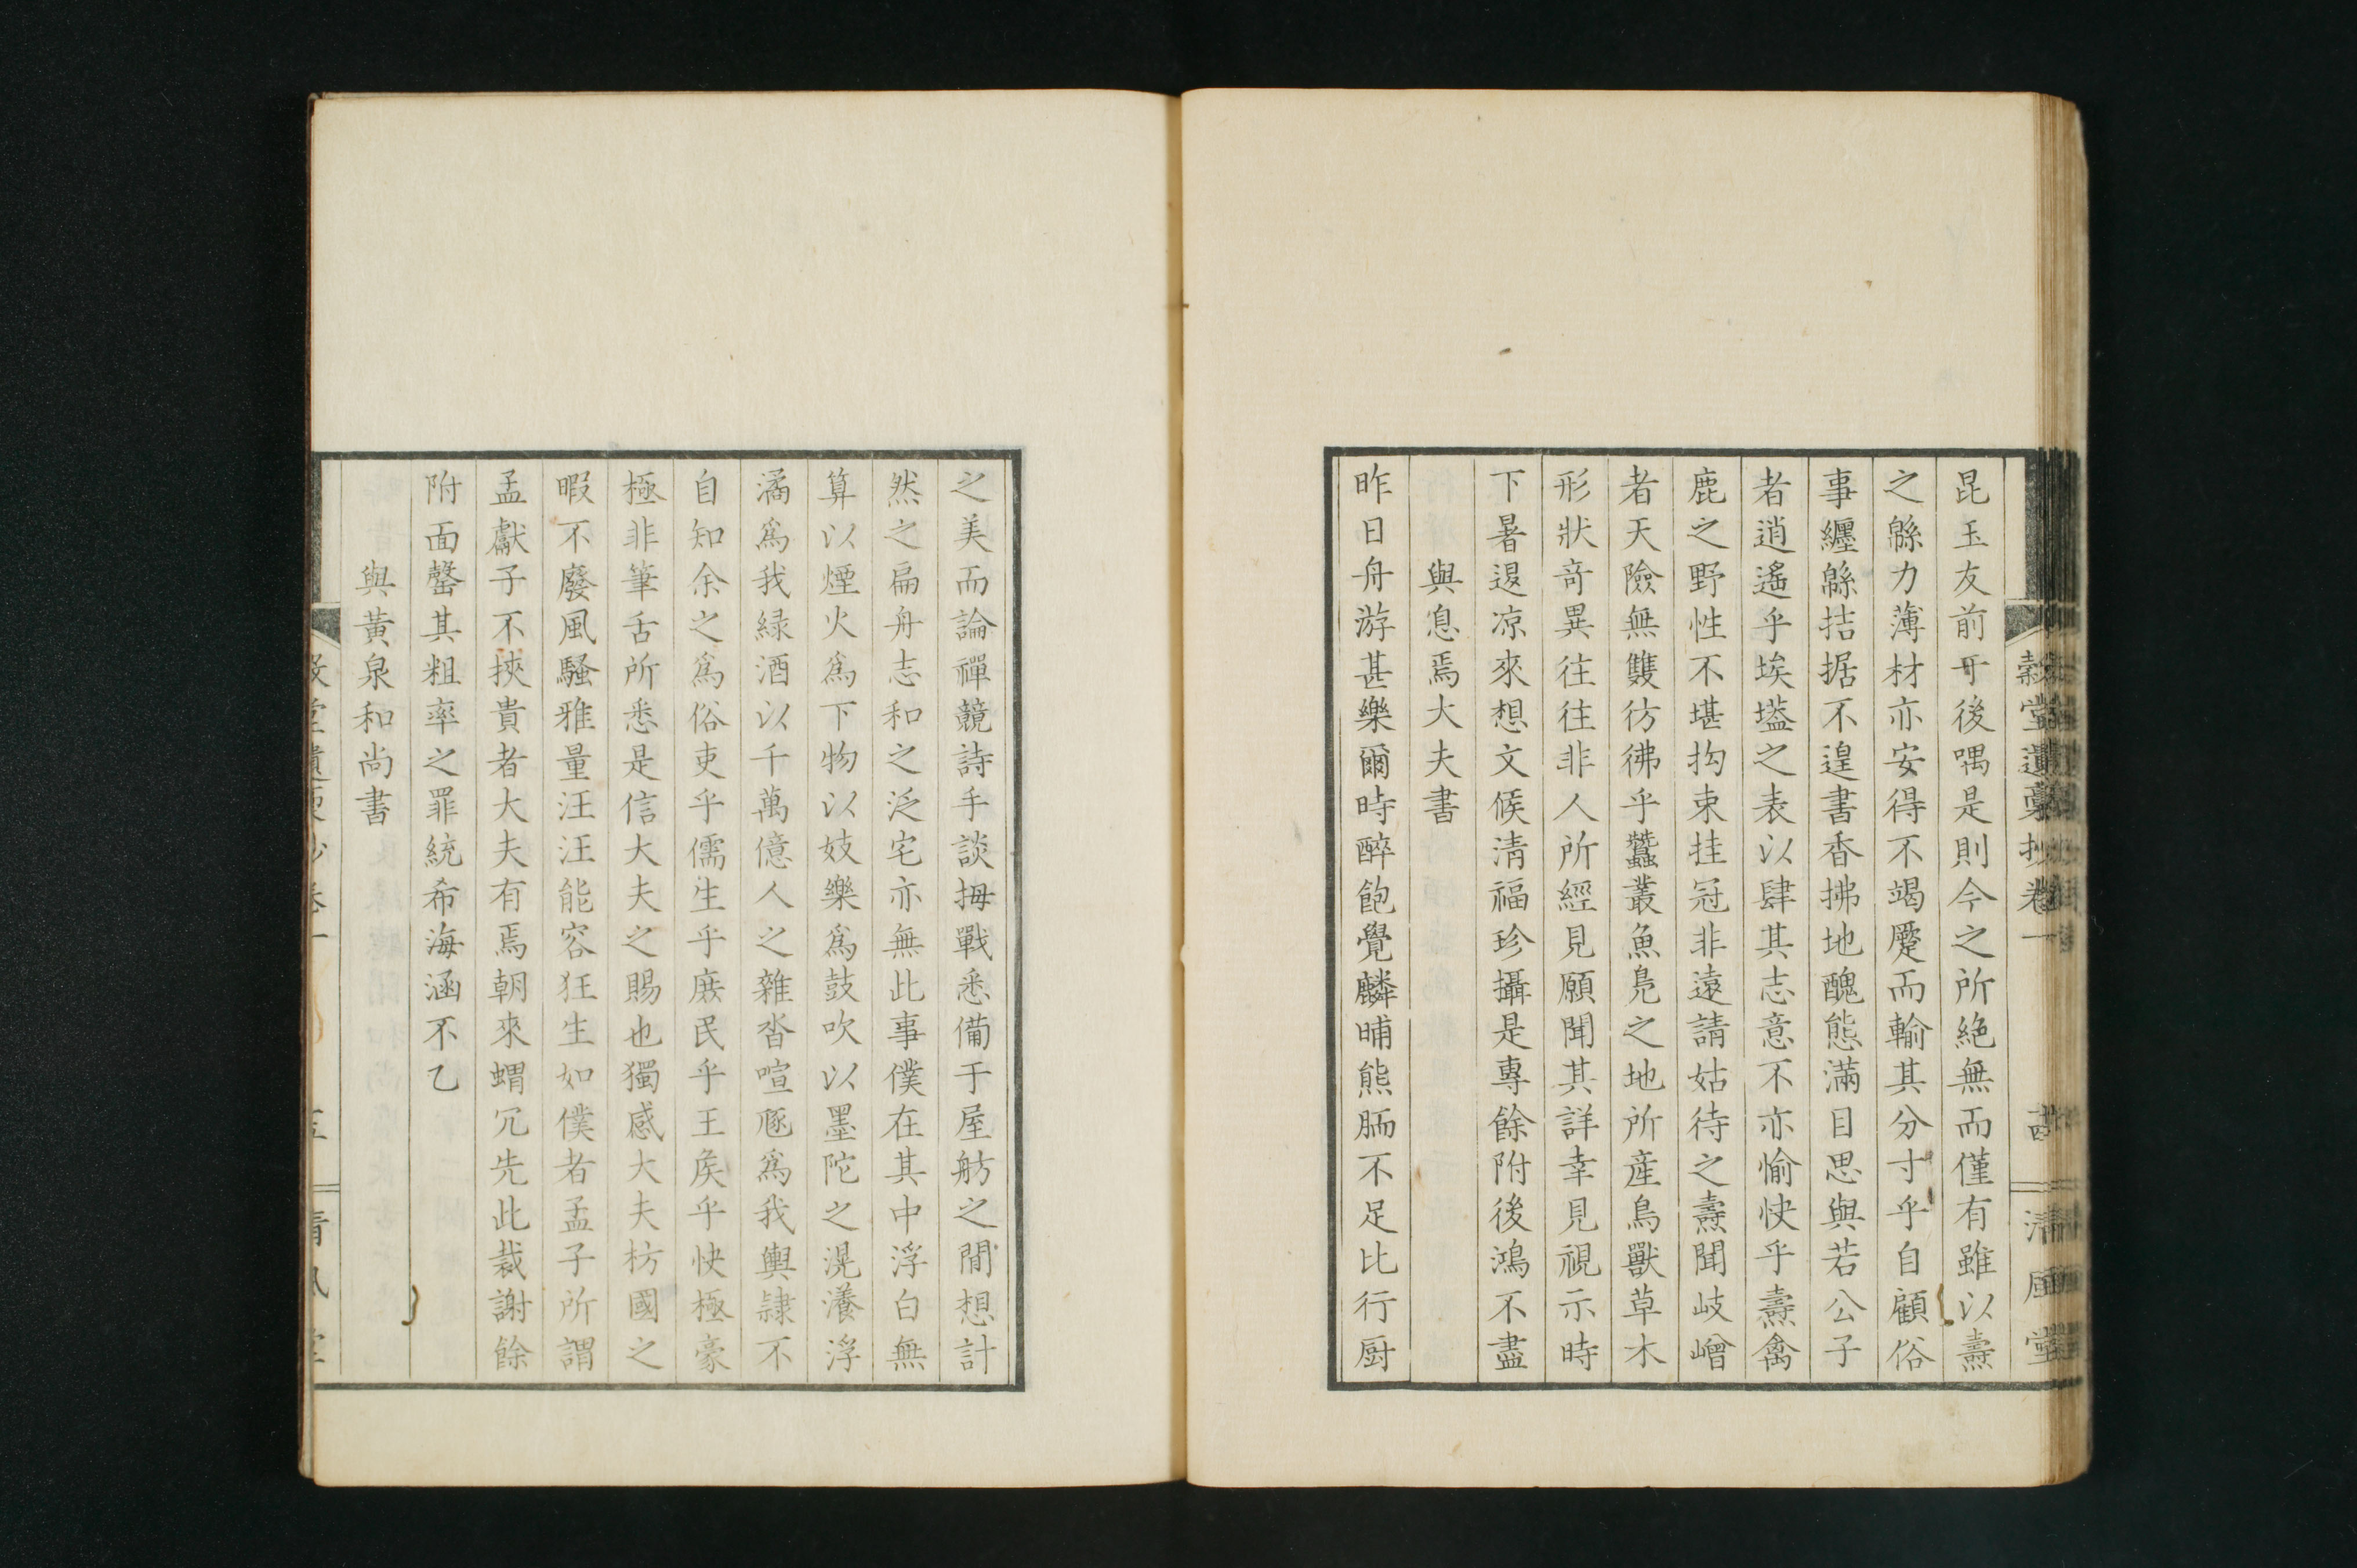 穀堂遺稾抄卷一 清風堂
昆玉友前亐後喁是則今之所絶無而僅有雖以燾
之緜力薄材亦安得不竭蹙而輸其分寸乎自顧俗
事纒緜拮据不遑書香拂地醜態滿目思與若公子
者逍遙乎埃壒之表以肆其志意不亦愉快乎燾禽
鹿之野性不堪拘束挂冠非遠請姑待之燾聞岐嶒
者天險無雙彷彿乎蠶叢魚鳧之地所産鳥獸草木
形狀奇異往往非人所經見願聞其詳幸見視示時
下暑退凉來想文候清福珍攝是專餘附後鴻不盡
與息焉大夫書
昨日舟游甚樂爾時醉飽覺麟晡熊胹不足比行厨
之美而論禪競詩手談拇戰悉備于屋舫之間想計
然之扁舟志和之泛宅亦無此事僕在其中浮白無
算以煙火爲下物以妓樂爲鼓吹以墨陀之滉瀁浮
潏爲我緑酒以千萬億人之雜沓喧豗爲我輿隷不
自知余之爲俗吏乎儒生乎庶民乎王矦乎快極豪
極非筆舌所悉是信大夫之賜也獨感大夫枋國之
暇不廢風騷雅量汪汪能容狂生如僕者孟子所謂
孟獻子不挾貴者大夫有焉朝來蝟冗先此裁謝餘
附面罄其粗率之罪統希海涵不乙
與黃泉和尚書